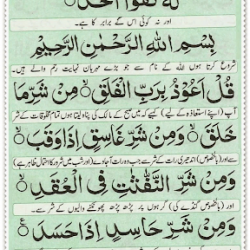 لَّهٗ كُفُوًا اَحَدٌ
اور نہ کوئی اس کے برابر کا ہے۔
بِسْمِ اللّٰهِ الرَّحْمٰنِ الرَّحِيْمِ
شروع کرتا ہوں اللہ کے نام سے جو بڑے مہربان نہایت رحم والے ہیں۔
قُلْ اَعُوْذُ بِرَبِّ الْفَلَقِ وَمِنْ شَرِّ مَا
آپ کہئے کہ میں صبح کے مالک کی پناہ لیتا ہوں تمام مخلوقات کے شر
خَلَقَ وَمِنْ شَرِّ غَاسِقٍ اِذَا وَقَبَ
سے اور اندھیری رات کے شر سے جب وہ رات آجائے
وَمِنْ شَرِّ النَّفّٰثٰتِ فِى الْعُقَدِ
اور گرہوں پر پڑھ پڑھ پھونکنے والیوں کے شر سے۔
وَمِنْ شَرِّ حَاسِدٍ اِذَا حَسَدَ